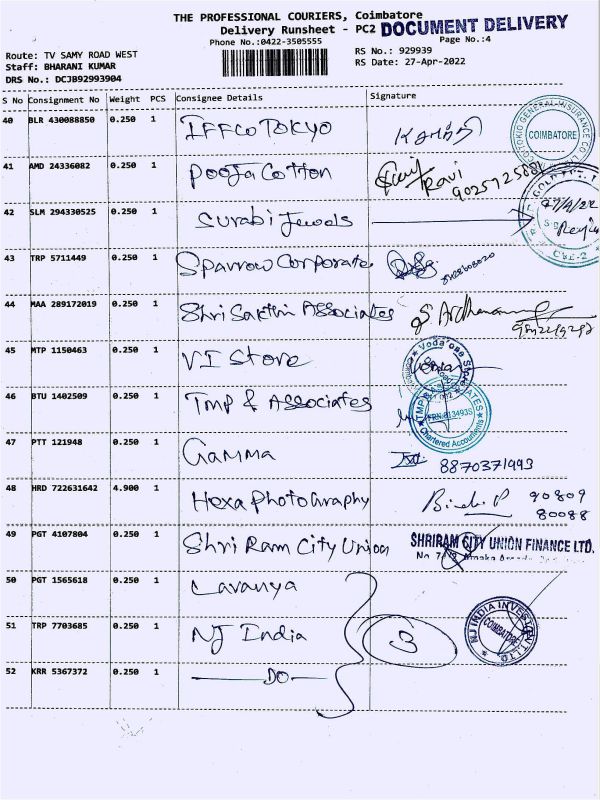 THE PROFESSIONAL COURIERS, Coimbatore
Delivery Runsheet - PC2 DOCUMENT DELIVERY
Phone No.:0422-3505555 Page No.:4
Route: TV SAMY ROAD WEST RS No.: 929939
Staff: BHARANI KUMAR RS Date: 27-Apr-2022
DRS No.: DCJB92993904
S No Consignment No Weight PCS Consignee Details Signature
40 BLR 430088850 0.250 1 IFFCO TOKYO COIMBATORE
41 AMD 24336082 0.250 1 Pooja Cotton Ravi
42 SLM 294330525 0.250 1 Surabi Jewels 27/4/22
43 TRP 5711449 0.250 1 Sparrow Corporate
44 MAA 289172019 0.250 1 Shri Sakthi Associates
45 MTP 1150463 0.250 1 VI Store Vodafone Store
46 BTU 1402509 0.250 1 TMP & Associates Chartered Accountants
47 PTT 121948 0.250 1 Gamma 8870371993
48 HRD 722631642 4.900 1 Hexa Photography 90809
80088
49 PGT 4107804 0.250 1 Shri Ram City Union SHRIRAM CITY UNION FINANCE LTD.
50 PGT 1565618 0.250 1 Lavanya
51 TRP 7703685 0.250 1 NJ India 3 NJ INDIA INVEST COIMBATORE
52 KRR 5367372 0.250 1 DO